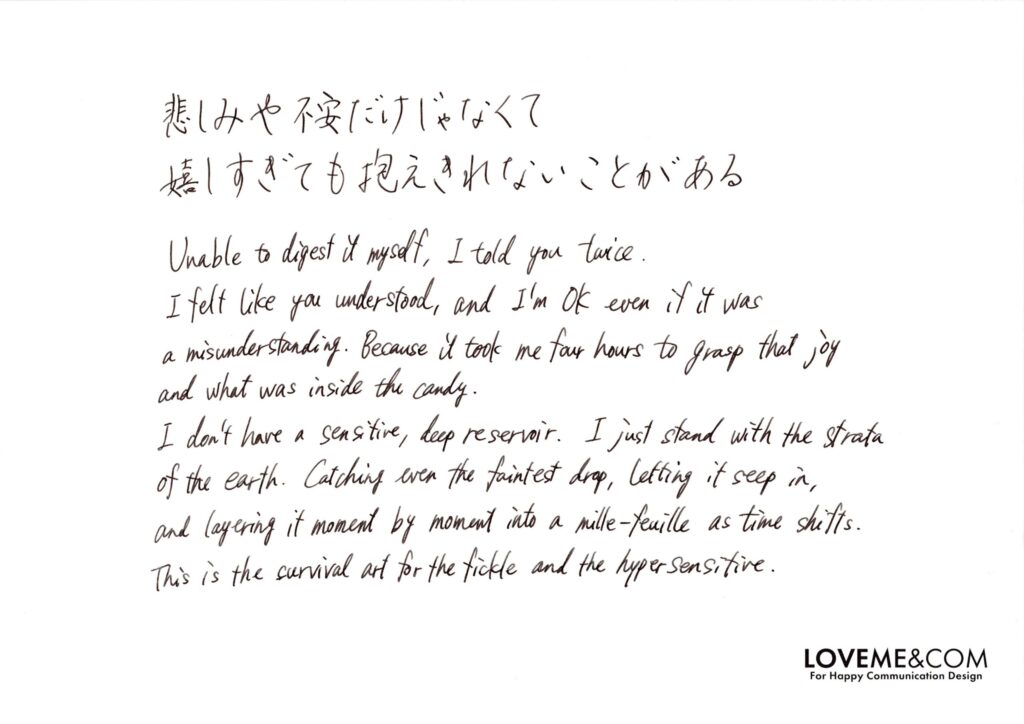 悲しみや不安だけじゃなくて
嬉しすぎても抱えきれないことがある
Unable to digest it myself, I told you twice.
I felt like you understood, and I'm OK even if it was
a misunderstanding. Because it took me four hours to grasp that joy
and what was inside the candy.
I don't have a sensitive, deep reservoir. I just stand with the strata
of the earth. Catching even the faintest drop, letting it seep in,
and layering it moment by moment into a mille-feuille as time shifts.
This is the survival art for the fickle and the hypersensitive.
LOVEME&COM
For Happy Communication Design